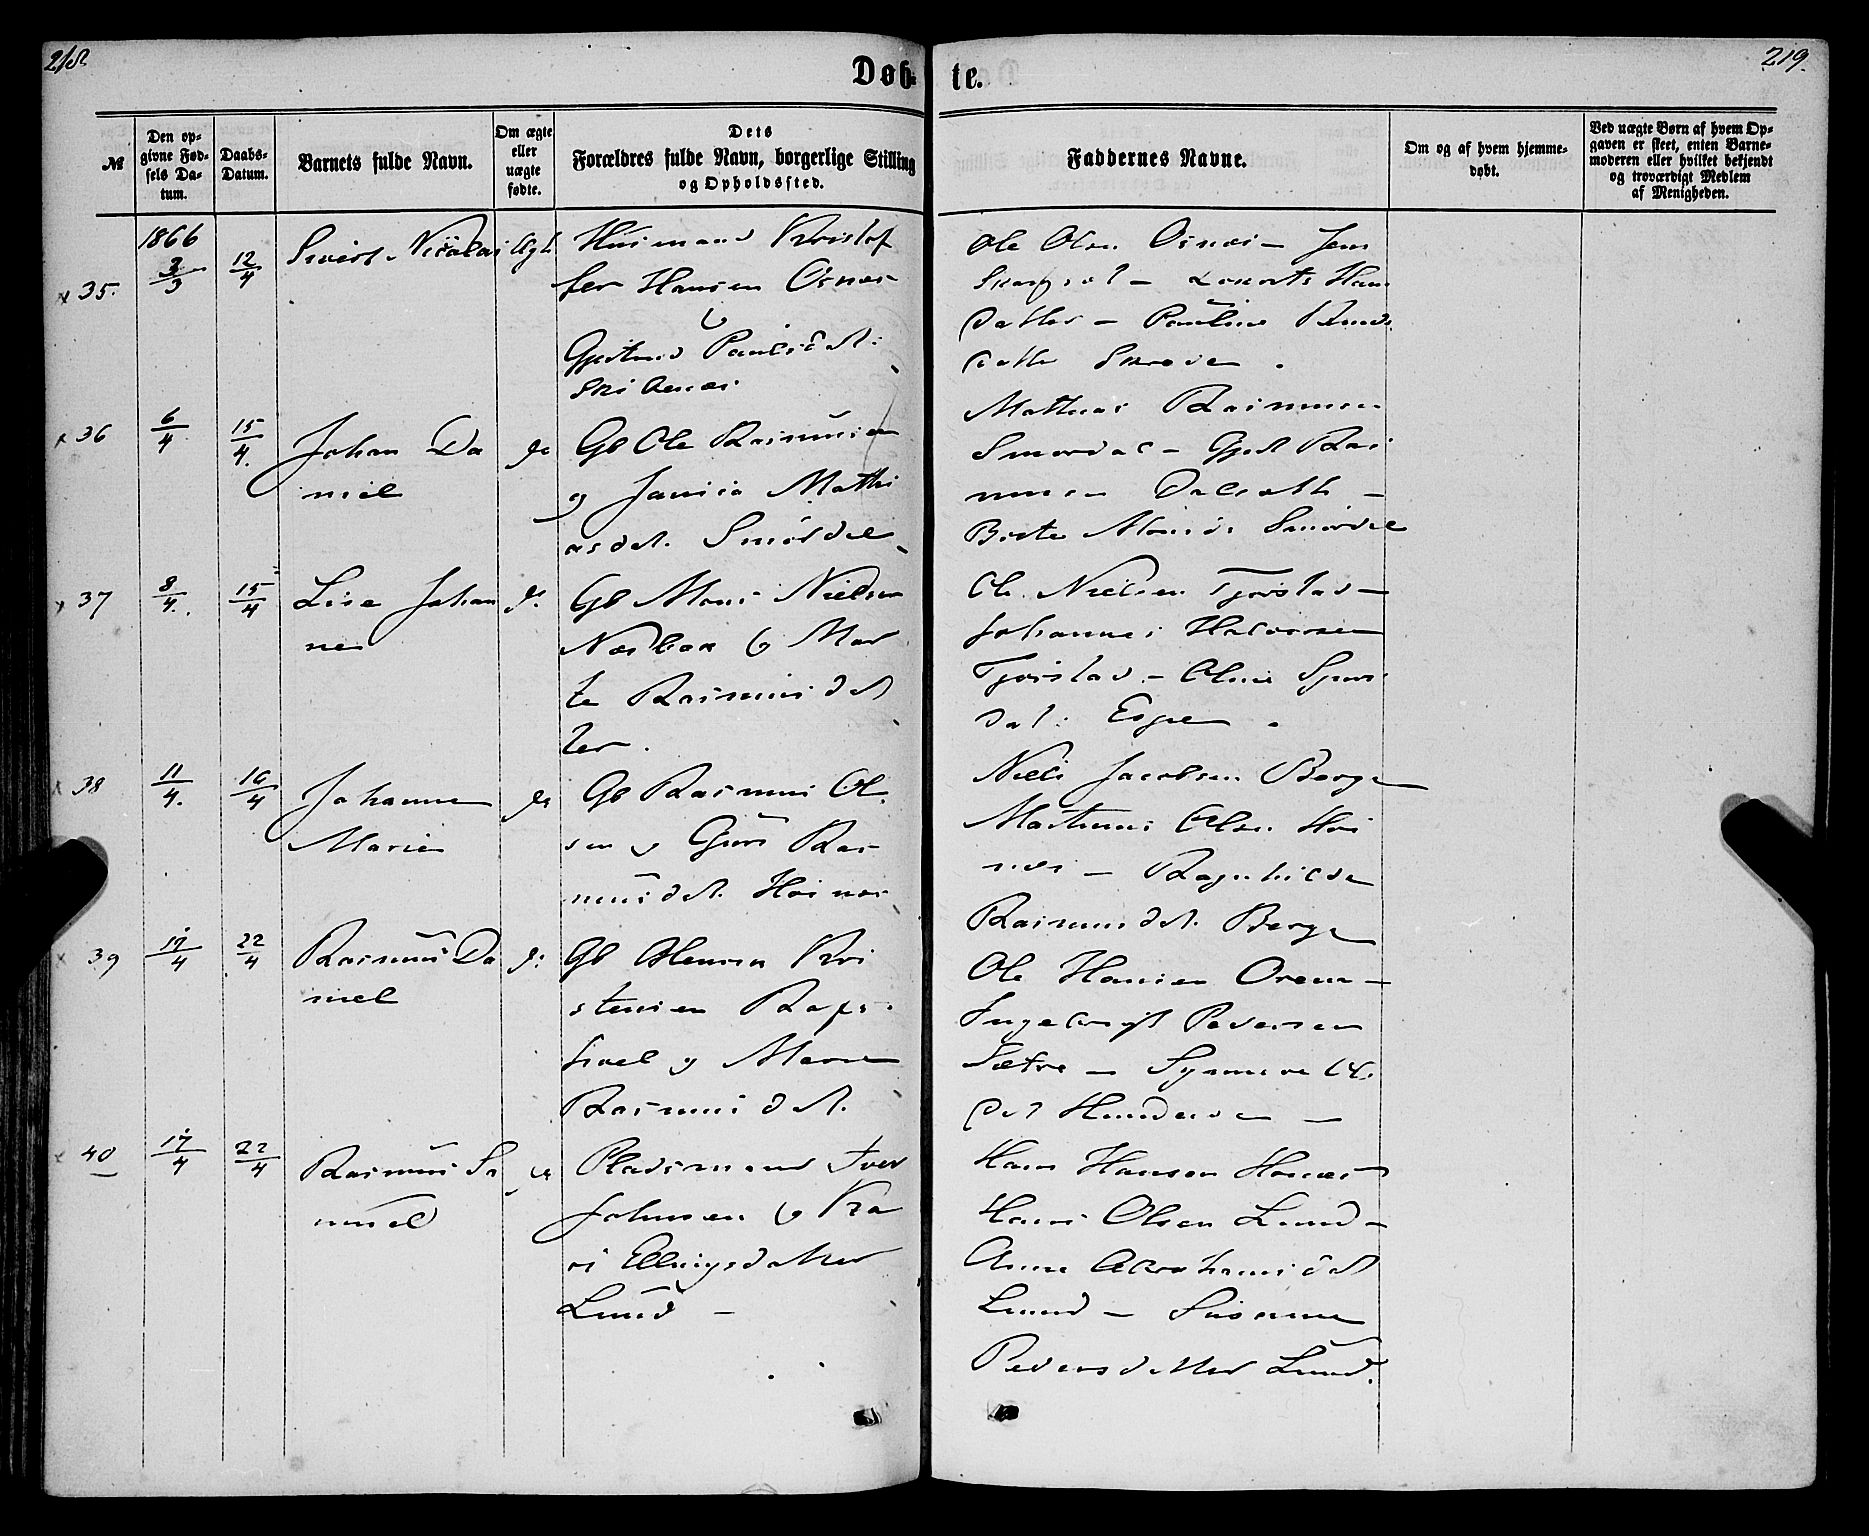 218
Døb-
te.
219.
№
Den op-
givne Fød-
sels Da-
tum.
Daabs-
Datum.
Barnets fulde Navn.
Om ægte
eller
uægte
fødte.
Dets
Forældres fulde Navn, borgerlige Stilling
og Opholdssted.
Faddernes Navne.
Om og af hvem hjemme-
døbt.
Ved uægte Børn af hvem Op-
gaven er skeet, enten Barne-
moderen eller hvilket bekjendt
og troværdigt Medlem
af Menigheden.
1866
x 35.
12/4
Sivert Nicolai
Husmand Kristof
fer Hansen Osnes
&
Paulsdt:
Ole Olsen Osnes - Jens
Hans
datter - Pauline Knuds
datter
x 36
6/4
15/4.
Johan Da
niel
do
Gb Ole Rasmusen
og Mathi
asdt. Smørdal
Mathias Rasmusen
Smørdal - Ras
musen
Brite Monsdt Smørdal
x 37
8/4.
15/4
Lise Johan
ne
do
Gb Mons Nielsen
& Mar
te Rasmusdt
ter.
Ole Nielsen Tjørslad -
Johannes Halvorsen
Tjørslad - Oline
dat: Espe.
x 38
11/4.
16/4
Johanne
Marie
do
Gb Rasmus Ol-
sen og Guri Ras
musdt. Høines
Niels Jacobsen Berge
Mathias Olsen Høi
nes - Ragnhilde
Rasmusdt. Berge
x 39
17/4
22/4
Rasmus Da
niel
do
Gb Kri
stensen
og Marie
Rasmusdt.
Ole Hansen
Ingebrigt Pedersen
Sætre - Synneve Ol.
dat
x 40
17/4
22/4
Rasmus Sa
muel
do
Pladsmand Iver
Johnsen & Ka
ri Ellingsdatter
Lund -
Hans Hansen
Hans Olsen Lund -
Anne Abrahamsdt
Lund - Susanne
Pedersdatter Lund.